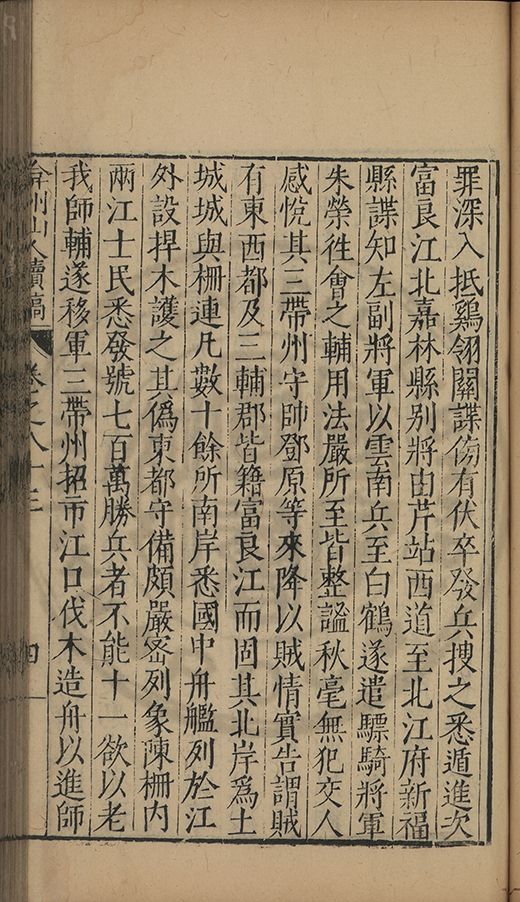 罪深入抵鷄翎關諜傍有伏卒發兵搜之悉遁進次
富良江北嘉林縣別將由芹站西道至北江府新福
縣諜知左副將軍以雲南兵至白鶴遂遣驃騎將軍
朱榮徃會之輔用法嚴所至皆整謐秋毫無犯交人
感悅其三帶州守帥鄧原等來降以賊情實告謂賊
有東西都及三輔郡皆籍富良江而固其北岸爲土
城城與柵連凡數十餘所南岸悉國中舟艦列於江
外設捍木護之其僞東都守備頗嚴密列象陳柵内
兩江士民悉發號七百萬勝兵者不能十一欲以老
我師輔遂移軍三帶州招市江口伐木造舟以進師
弇州山人續稿 卷之八十三 四